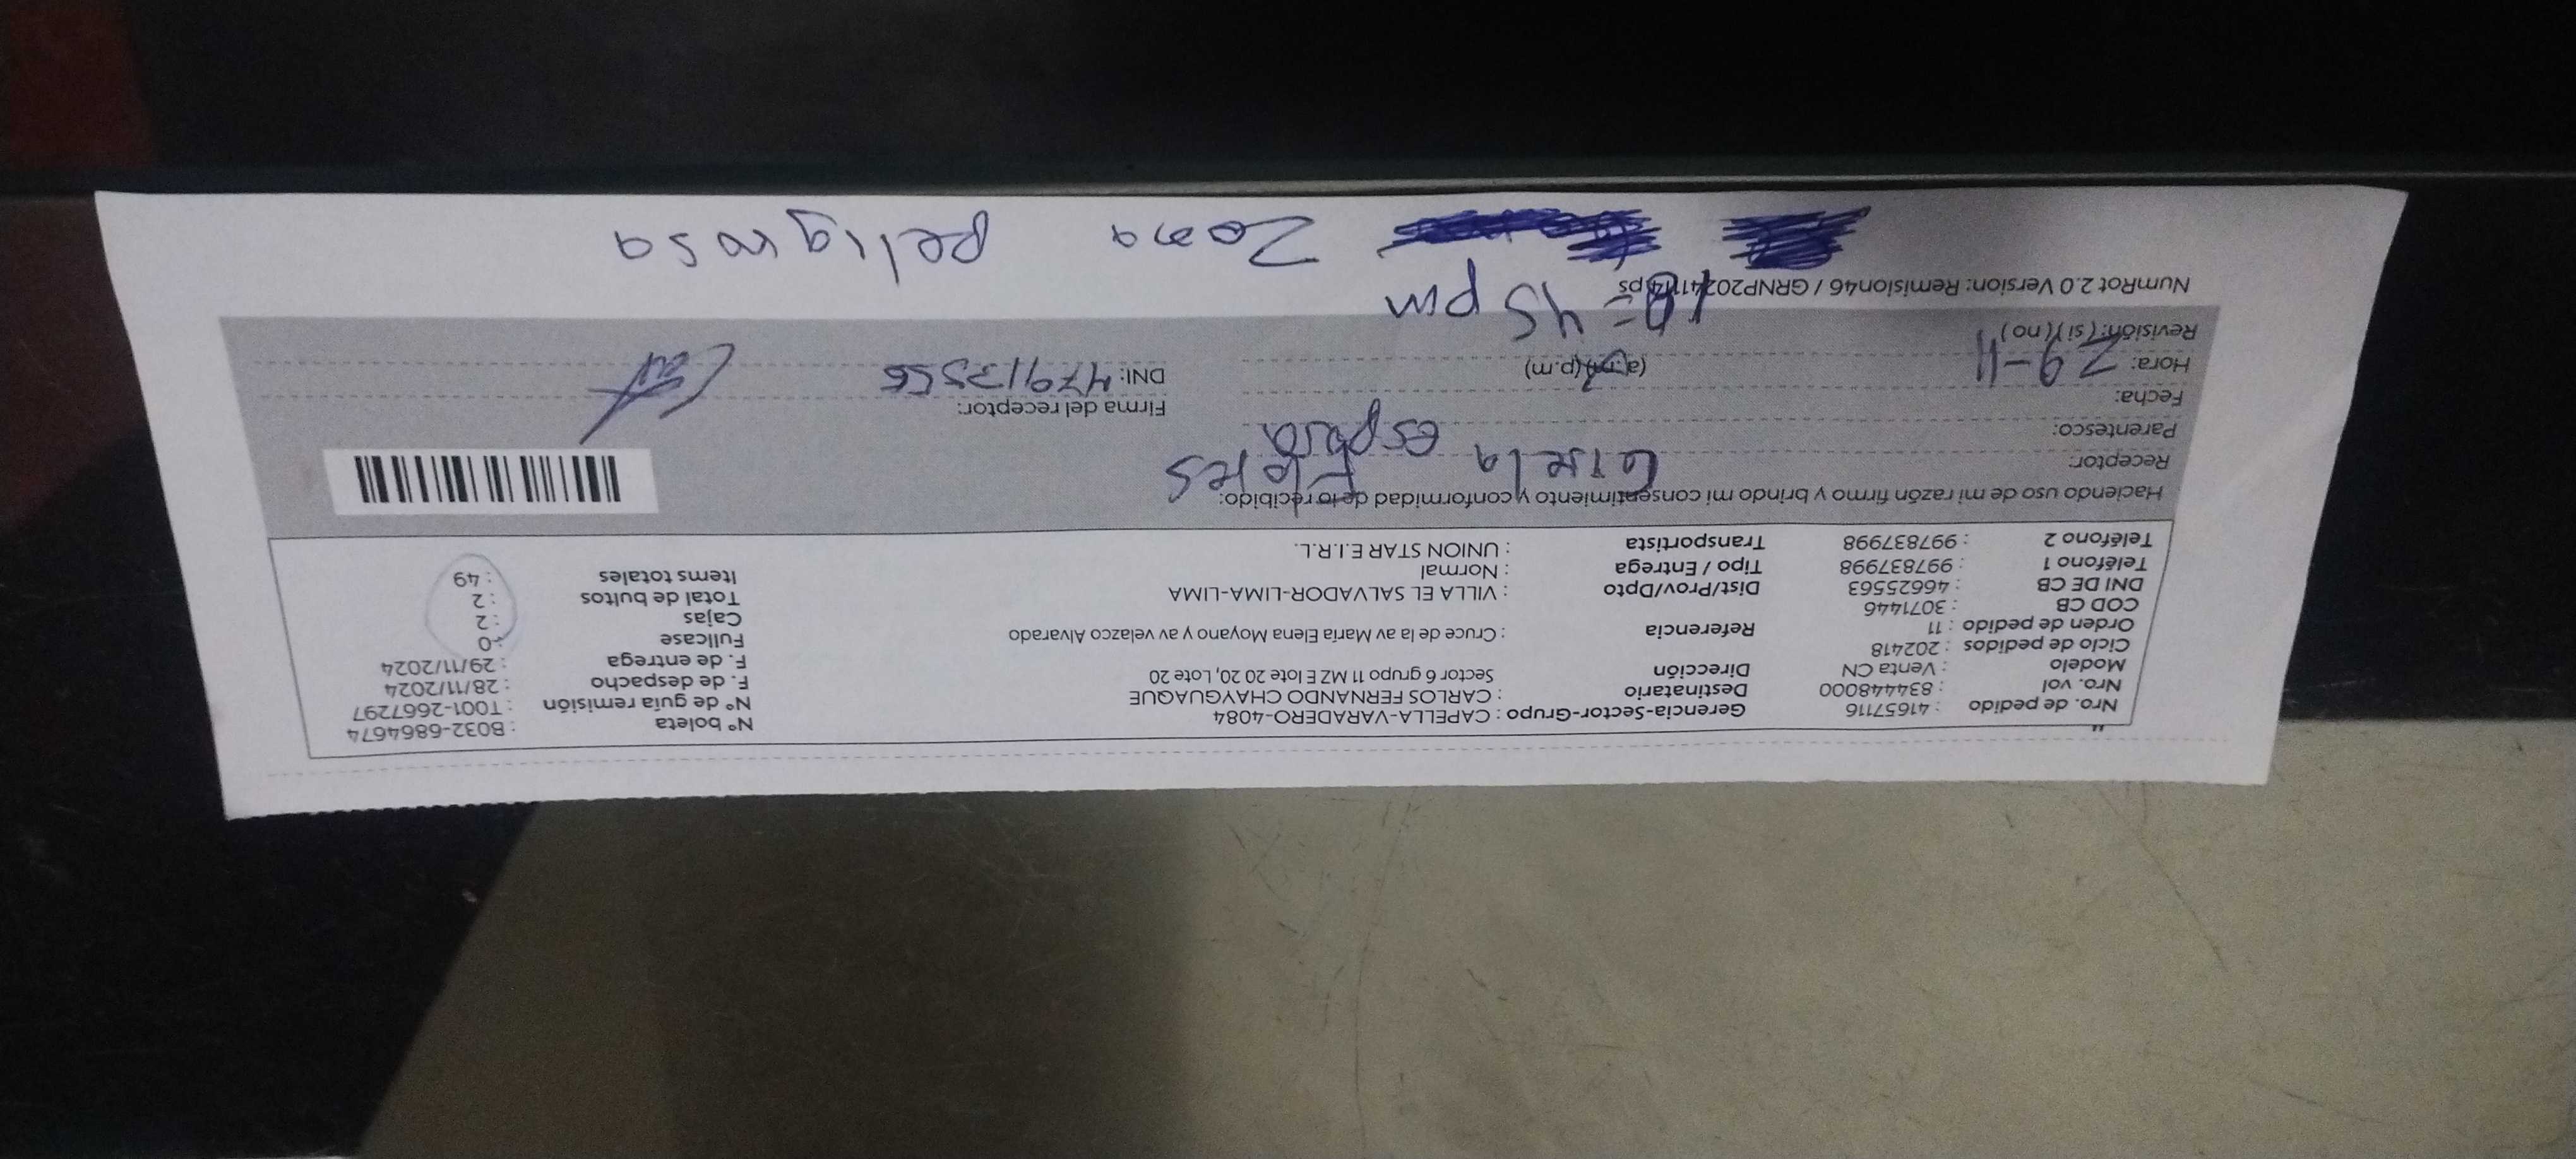 Nro. de pedido : 41657116 Gerencia-Sector-Grupo : CAPELLA-VARADERO-4084 N° boleta : B032-6864674
Nro. vol : 83448000 Destinatario : CARLOS FERNANDO CHAYGUAQUE N° de guía remisión : T001-2667297
Modelo : Venta CN Dirección Sector 6 grupo 11 MZ E lote 20 20, Lote 20 F. de despacho : 28/11/2024
Ciclo de pedidos : 202418 F. de entrega : 29/11/2024
Orden de pedido : 11 Referencia : Cruce de la av María Elena Moyano y av velazco Alvarado Fullcase : 0
COD CB : 3071446 Cajas : 2
DNI DE CB : 46625563 Dist/Prov/Dpto : VILLA EL SALVADOR-LIMA-LIMA Total de bultos : 2
Teléfono 1 : 997837998 Tipo / Entrega : Normal Items totales : 49
Teléfono 2 : 997837998 Transportista : UNION STAR E.I.R.L.
Haciendo uso de mi razón firmo y brindo mi consentimiento y conformidad de lo recibido:
Receptor: Flores
Parentesco: esposa
Fecha: Firma del receptor:
Hora: 29-11 (a.m) (p.m) DNI:
Revisión: ( si ) ( no )
10=45 pm
NumRot 2.0 Version: Remision46 / GRNP20241114.ps
Zona peligrosa